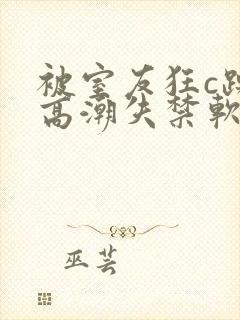 被室友狂c
高潮失禁軟
巫芸